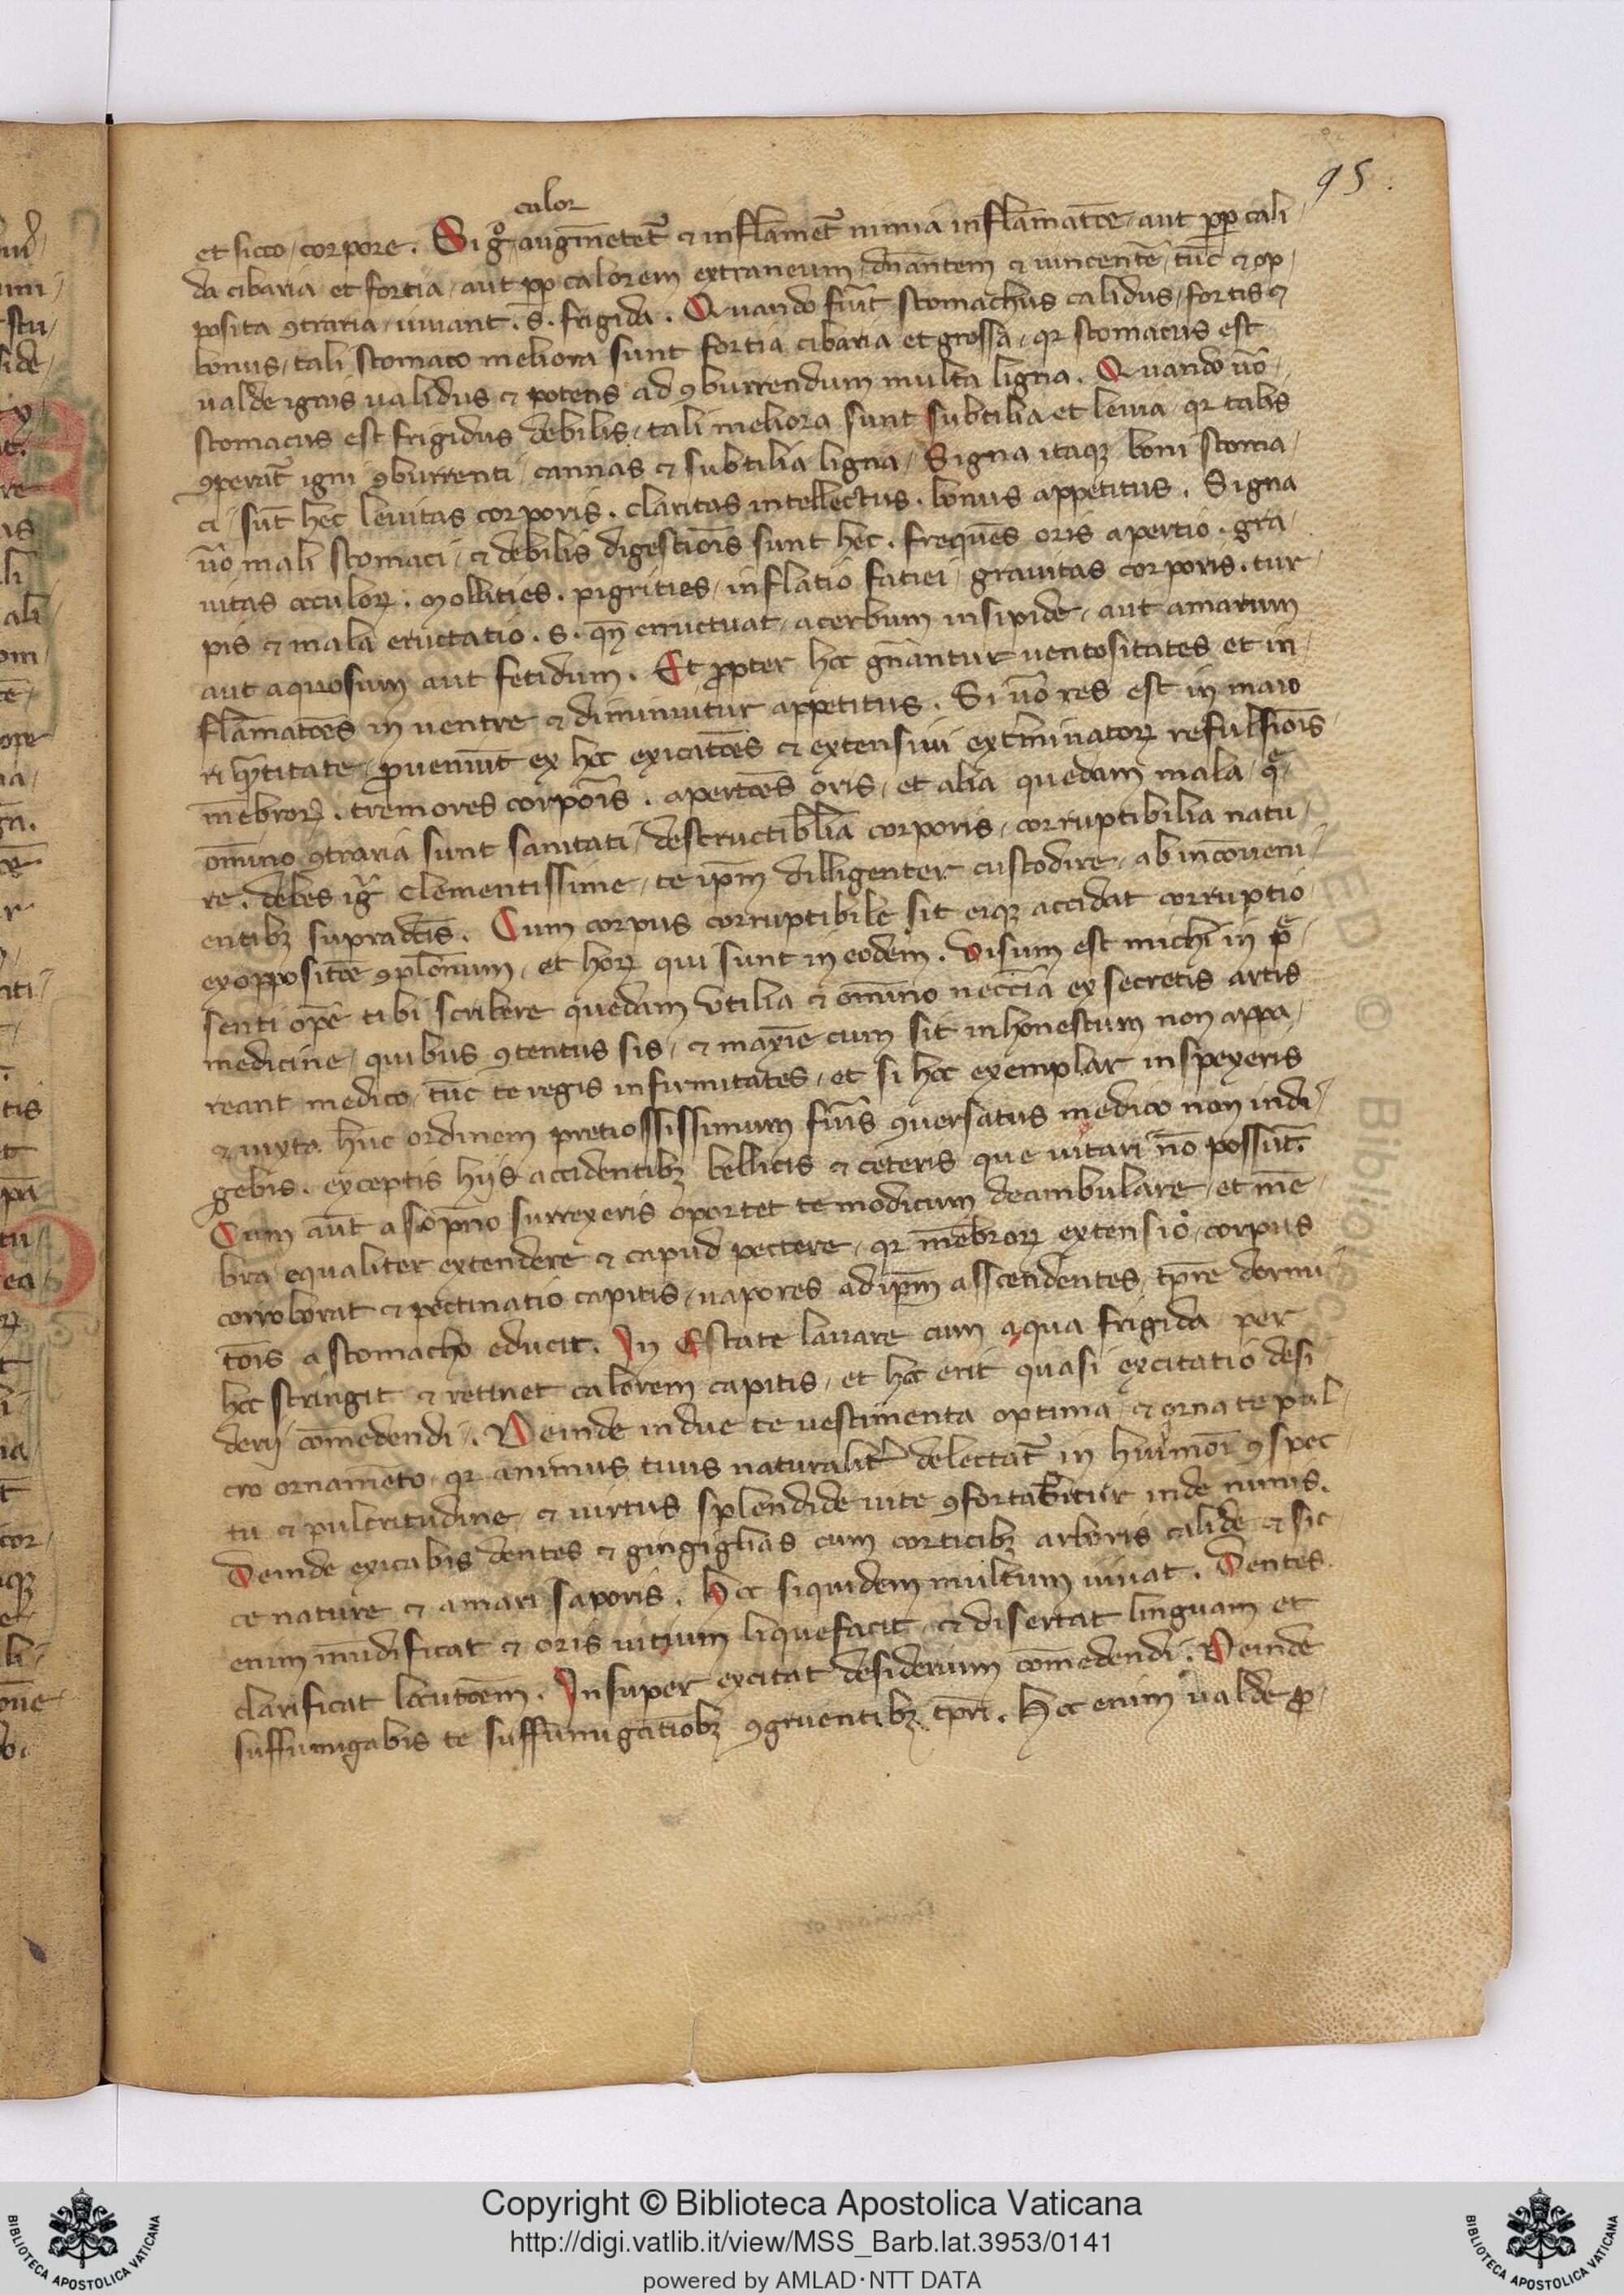 95.
calor
et sicco corpore. Si gͦ augmētet᷑ ⁊ inflāmet᷑ nimia inflāmatōe aut ꝓp cali
da cibaria et fortia aut ꝓp calorem extraneum dn̄antem ⁊ uincentē tūc ⁊ op
posita ꝯtraria iuuant. s. frigida. Quando fūit stomachus calidus fortis ⁊
bonus tali stomaco meliora sunt fortia cibaria et grossa qꝛ stomacus est
ualde ignis ualidus ⁊ potens ad ꝯburrendum multa ligna. Quando uō
stomacus est frigidus debilis tali meliora sunt subtilia et leuia qꝛ talis
ꝯperat᷑ igni ꝯburrenti cannas ⁊ subtilia ligna Signa itaqꝫ boni stoma
ci sūt hec leuitas corporis. claritas intellectus. bonus appetitus. Signa
uō mali stomaci ⁊ debilis digestiōis sunt hec. frequēs oris apertio. gra
uitas occuloꝝ. mollities. pigrities inflatio faciei grauitas corporis. tur
pis ⁊ mala eructatio. s. qn̄ erructuat acerbum insipide aut amarum
aut aquosum aut fetidum. Et ꝓpter hoc gn̄antur uentositates et in
flāmatōes in uentre ⁊ diminuitur appetitus. Si uō res est in maio
ri qn̄titate ꝓueniūt ex hoc exicatōes ⁊ extensiui extͥminatoꝝ refulsiōis
mēbroꝝ. tremores corpōis. apertōes oris et alia quedam mala q̄
omīno ꝯtraria sunt sanitati destructibl̄ia corporis corruptibilia natu
re. debes igͥ clementissime te ip̄m dilligenter custodire ab incōueni
entibꝫ supradc̄is. Cum corpus corruptibile sit eiqꝫ accidat corruptio
ex oppositōe ꝯplōnum et hoꝝ qui sunt in eodem. Visum est michi in p̄
senti opē tibi scribere quedam utilia ⁊ omīno neccīa ex secretis artis
medicine quibus ꝯtentus sis ⁊ maxīe cum sit inhonestum non appa
reant medico tūc te regis infirmitates et si hoc exemplar inspexeris
⁊ iuxta hūc ordinem pretiosſissimum fūis ꝯuersatus medico non indi
gebis. exceptis hijs accidentibꝫ bellicis ⁊ ceteris que uitari nō possūt.
Cum aūt a sōpno surrexeris oportet te modicum deambulare et mē
bra equaliter extendere ⁊ capud pectere qꝛ mēbroꝝ extensio corpus
corroborat ⁊ pectinatio capitis uapores ad ip̄m asscendentes tp̄re dormi
tōis a stomacho educit. In Estate lauare cum aqua frigida per
hoc stringit ⁊ retinet calorem capitis et hoc erit quasi excitatio desi
derij comēdendi. Deinde indue te uestimenta optima ⁊ orna te pul
cro ornamēto qꝛ animus tuus naturalit᷑ delectat᷑ in huiꝰmoī ꝯspec
tu ⁊ pulcritudine ⁊ uirtus splendide uite ꝯfortabitur inde nimis.
Deinde exicabis dentes ⁊ gingiglias cum corticibꝫ arboris calide ⁊ sic
ce nature ⁊ amari saporis. Hoc siquidem multum iuuat. Dentes
enim mūdificat ⁊ oris uitium liquefacit ⁊ disertat linguam et
clarificat locutōem. Insuper excitat desiderium comēdendi. Deinde
suffumigabis te suffumigatiōbꝫ ꝯgruentibꝫ tp̄ri. Hoc enim ualde ꝓ
Copyright © Biblioteca Apostolica Vaticana
http://digi.vatlib.it/view/MSS_Barb.lat.3953/0141
powered by AMLAD·NTT DATA
BIBLIOTECA APOSTOLICA VATICANA
BIBLIOTECA APOSTOLICA VATICANA